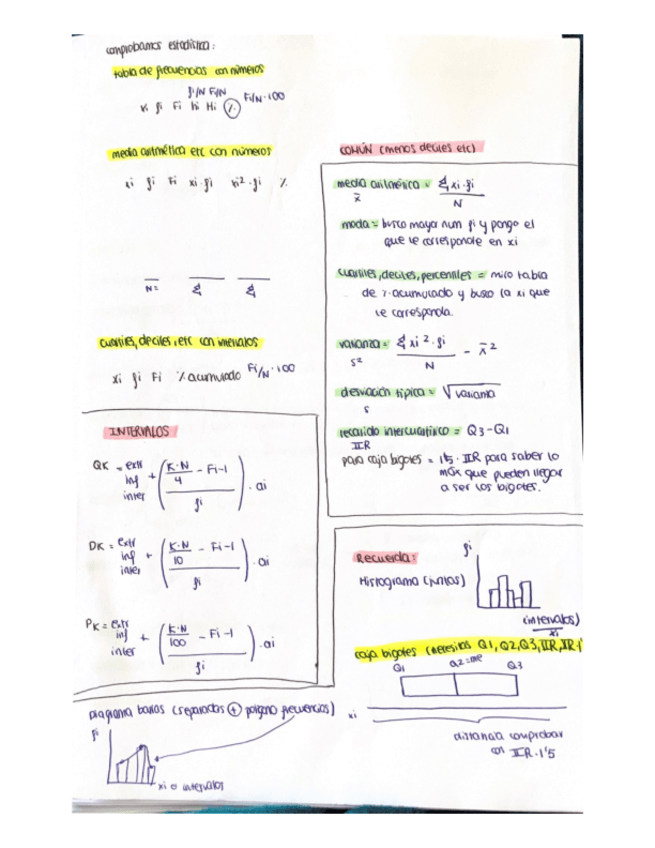 comprobamos estadística:
tabla de frecuencias con números
fi/N Fi/N
xi fi Fi hi Hi % Fi/N·100
media aritmética etc con números
xi fi Fi xi·fi xi²·fi %
N= Σ Σ
cuartiles, deciles, etc con intervalos
xi fi Fi % acumulado Fi/N·100
INTERVALOS
QK = extr inf inter + (K·N/4 - Fi-1 / fi) · ai
DK = extr inf inter + (K·N/10 - Fi-1 / fi) · ai
PK = extr inf inter + (K·N/100 - Fi-1 / fi) · ai
COMÚN (menos deciles etc)
media aritmética = Σ xi·fi / N
x̄
moda = busco mayor num fi y pongo el
que le corresponde en xi
cuartiles, deciles, percentiles = miro tabla
de % acumulado y busco la xi que
le corresponda.
varianza = Σ xi²·fi / N - x̄²
s²
desviación típica = √varianza
s
recorrido intercuartílico = Q3-Q1
IIR
para caja bigotes = 1'5 · IIR para saber lo
max que pueden llegar
a ser los bigotes.
Recuerda:
fi
Histograma (juntas)
(intervalos)
xi
caja bigotes (necesitas Q1, Q2, Q3, IIR, IIR·1'
Q1 Q2=me Q3
xi
distancia comprobar
con IIR·1'5
Diagrama barras (separadas + polígono frecuencias)
fi
xi o intervalos